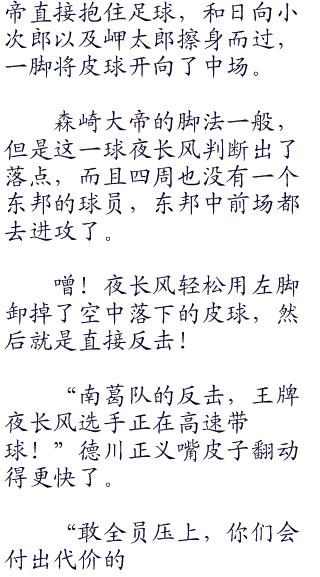 帝直接抱住足球，和日向小
次郎以及岬太郎擦身而过，
一脚将皮球开向了中场。
森崎大帝的脚法一般，
但是这一球夜长风判断出了
落点，而且四周也没有一个
东邦的球员，东邦中前场都
去进攻了。
噌！夜长风轻松用左脚
卸掉了空中落下的皮球，然
后就是直接反击！
“南葛队的反击，王牌
夜长风选手正在高速带
球！”德川正义嘴皮子翻动
得更快了。
“敢全员压上，你们会
付出代价的